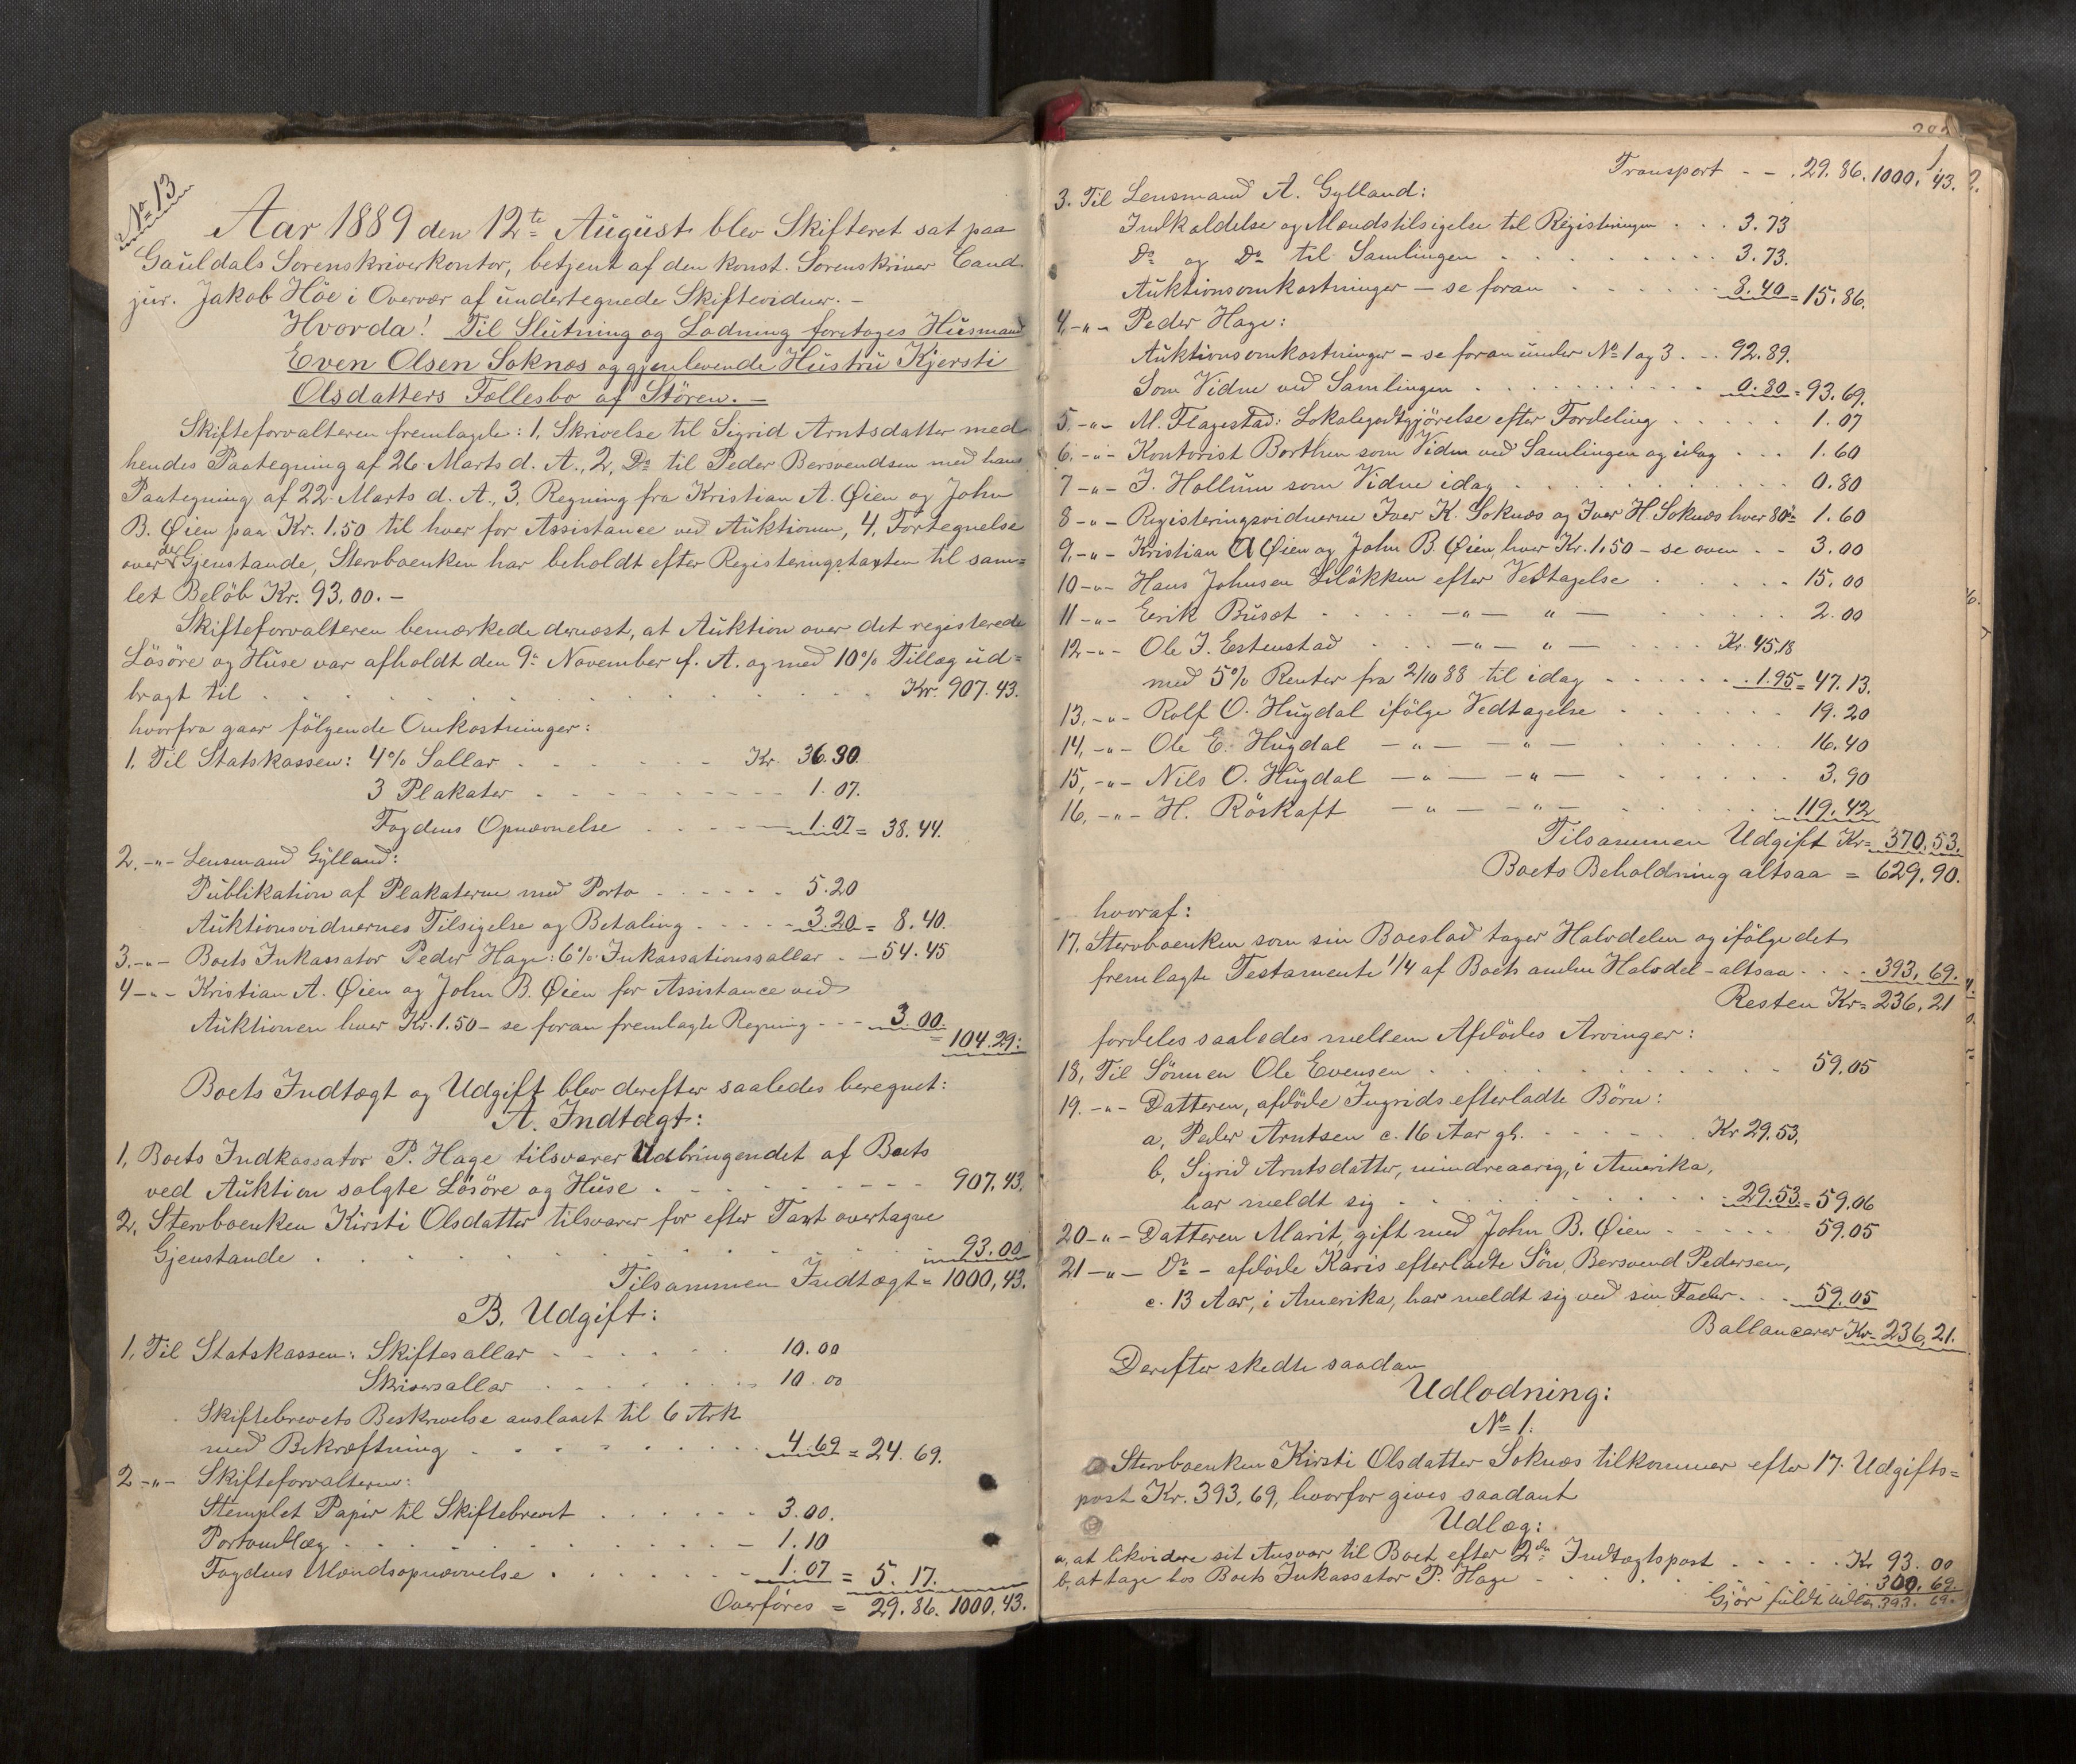 No 13
Aar 1889 den 12te August blev Skifteret sat paa
Gauldals Sorenskriverkontor, betjent af den konst. Sorenskriver Cand.
jur. Jakob Höe i Overvær af undertegnede Skiftevidner. –
Hvorda! Til Slutning og Lodning foretoges Husmand
Even Olsen Soknæs og gjenlevende Hustru Kjersti
Olsdatters Fællesbo af Stören. –
Skifteforvalteren fremlagde: 1, Skrivelse til Sigrid Arntsdatter med
hendes Paategning af 26 Marts d. A., 2, Do til Peder Bersvendsen med hans
Paategning af 22 Marts d. A., 3, Regning fra Kristian A. Øien og John
B. Øien paa Kr. 1.50 til hver for Assistance ved Auktionen, 4, Fortegnelse
over de Gjenstande, Stervboenken har beholdt efter Registeringstaxten til sam=
let Belöb Kr. 93.00. –
Skifteforvalteren bemærkede dernæst, at Auktion over det registerede
Lösöre og Huse var afholdt den 9de November f. A. og med 10% Tillæg ud=
bragt til . . . Kr. 907.43.
hvorfra gaar fölgende Omkostninger:
1, Til Statskassen: 4% Sallar . . . Kr. 36.30
3 Plakater . . . 1.07.
Fogdens Opnævnelse . . . 1.07 = 38.44.
2, -"- Lensmand Gylland:
Publikation af Plakaterne med Porto . . . 5.20
Auktionsvidnernes Tilsigelse og Betaling . . . 3.20 = 8.40.
3, -"- Boets Inkassator Peder Hage: 6% Inkassationssallar . – 54.45
4 -"- Kristian A. Øien og John B. Øien for Assistance ved
Auktionen hver Kr. 1.50 – se foran fremlagte Regning - - - 3.00.
= 104.29.
Boets Indtægt og Udgift blev derefter saaledes beregnet:
A. Indtægt:
1, Boets Indkassator P. Hage tilsvarer Udbringendet af Boets
ved Auktion solgte Lösöre og Huse . . . 907.43.
2, Stervboenken Kirsti Olsdatter tilsvarer for efter Taxt overtagne
Gjenstande . . . 93.00
Tilsammen Indtægt = 1000,43.
B. Udgift:
1, Til Statskassen: Skiftesallar . . . 10.00
Skriversallar . . . 10.00
Skiftebrevets Beskrivelse anslaaet til 6 Ark
med Bekræftning . . . 4.69 = 24.69.
2 -"- Skifteforvalteren:
Stemplet Papir til Skiftebrevet . . . 3.00.
Portoudlæg . . . 1.10
Fogdens Mændsopnævnelse . . . 1.07 = 5.17.
Overföres = 29.86. 1000,43.
Transport - - . 29.86. 1000,43.
3. Til Lensmand A. Gylland:
Indkaldelse og Mændstilsigelse til Registeringen . . . 3.73
Do og Do til Samlingen . . . 3.73.
Auktionsomkostninger – se foran . . . 8.40 = 15.86.
4, -"- Peder Hage:
Auktionsomkostninger – se foran under No 1 og 3 . . . 92.89.
Som Vidne ved Samlingen . . . 0.80 = 93.69.
5, -"- M. Flagestad: Lokalegodtgjörelse efter Fordeling . . . 1.07
6, -"- Kontorist Borthen som Vidne ved Samlingen og idag . . . 1.60
7 -"- J. Hollum som Vidne idag . . . 0.80
8 -"- Registeringsvidnerne Iver K. Soknæs og Iver H. Soknæs hver 80 1.60
9, -"- Kristian A Øien og John B. Øien, hver Kr. 1.50 – se oven . . 3.00
10 -"- Hans Johnsen Liløkken efter Vedtagelse . . . 15.00
11 -"- Eerik Busæt . . . -"- " - . . . 2.00
12 -"- Ole J. Estenstad . . . -"- " - . . . Kr. 45.18
med 5% Renter fra 2/10 88 til idag . . . 1.95 = 47.13.
13, -"- Rolf O. Hugdal ifölge Vedtagelse . . . 19.20
14, -"- Ole E. Hugdal -"- -"- . . . 16.40
15, -"- Nils O. Hugdal -"- -"- . . . 3.90
16, -"- H. Röskaft -"- -"- . . . 119.42
Tilsammen Udgift Kr = 370.53.
Boets Beholdning altsaa = 629.90.
hvoraf:
17. Stervboenken som sin Boeslod tager Halvdelen og ifölge det
fremlagte Testamente 1/4 af Boets anden Halvdel – altsaa . . . 393,69.
Resten Kr = 236,21
fordeles saaledes mellem Afdödes Arvinger:
18, Til Sönnen Ole Evensen . . . 59.05
19. -"- Datteren, afdöde Ingrids efterladte Börn:
a, Peder Arntsen c. 16 Aar gl. . . . Kr 29.53.
b, Sigrid Arntsdatter, mindreaarig, i Amerika,
har meldt sig . . . 29.53 = 59.06
20 -"- Datteren Marit, gift med John B. Øien . . . 59.05
21 -"- Do - afdöde Karis efterladte Sön, Bersvend Pedersen,
c. 13 Aar, i Amerika, har meldt sig ved sin Fader . . . 59.05
Ballancerer Kr = 236,21.
Derefter skedte saadan
Udlodning:
No 1.
Stervboenken Kirsti Olsdatter Soknæs tilkommer efter 17. Udgifts=
post Kr. 393,69, hvorfor gives saadant
Udlæg:
a, at likvidere sit Ansvar til Boet efter 2den Indtægtspost . . . Kr 93.00
b, at tage hos Boets Inkassator P. Hage . . . 300.69.
Gjör fuldt Udlæg 393.69.